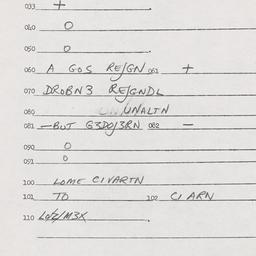 033 +
040 0
050 0
060 A GOS RE/GN 061 +
070 DROBN3 RE/GNDL
080 UNALTN
081 -BUT G3DO/3RN 082 -
090 0
091 0
100 LOME CIVARTN
101 TO 102 CI ARN
110